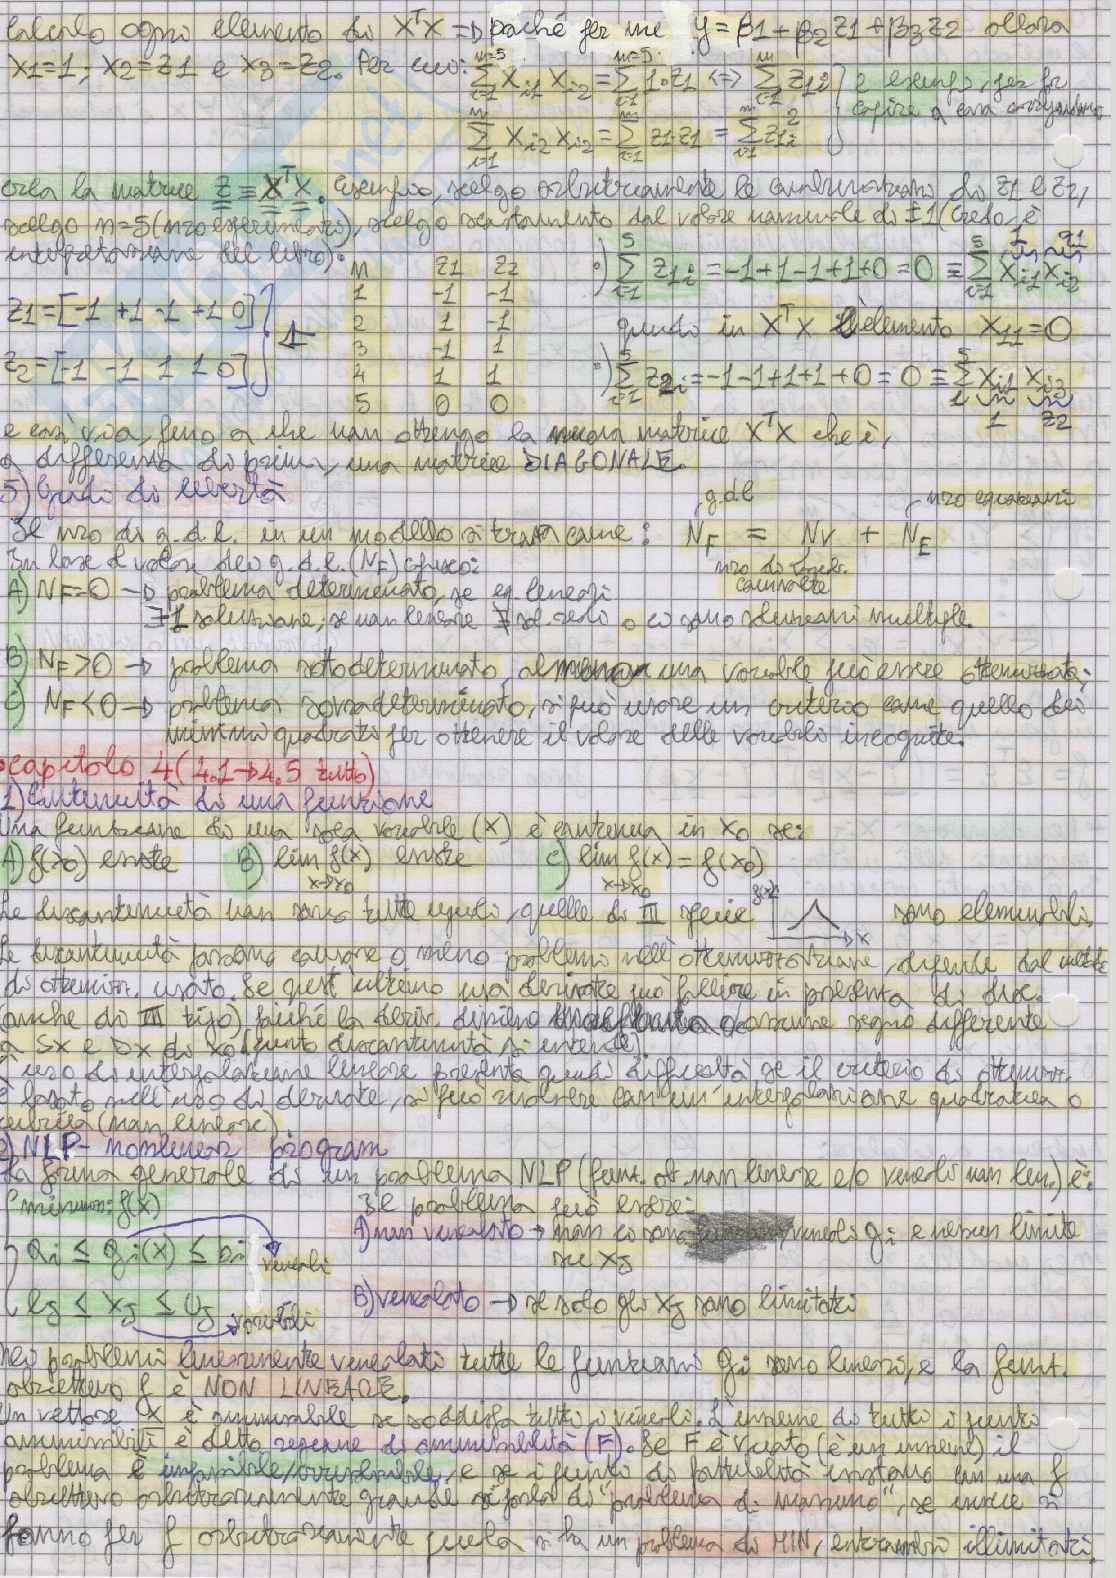 Calcolo ogni elemento di X^T X => poiché per me y = β1 + β2 z1 + β3 z2 allora
x1=1; x2=z1 e x3=z2. Per cui: Σ_{i=1}^{m=5} x_{i1} x_{i2} = Σ_{i=1}^{m=5} 1·z1 <=> Σ_{i=1}^{m} z_{1i} } e esempio, per far
Σ_{i=1}^{m} x_{i2} x_{i2} = Σ_{i=1}^{m} z1·z1 = Σ_{i=1}^{m} z_{1i}^2 capire a cosa
crea la matrice z = X^T X. Esempio, scelgo arbitrariamente le combinazioni di z1 e z2,
scelgo n=5 (nro esperimenti), scelgo scostamento dal valore nominale di ±1 (credo, è
interpretazione del libro):
z1=[-1 +1 -1 +1 0]
z2=[-1 -1 1 1 0]
n z1 z2
1 -1 -1
2 1 -1
3 -1 1
4 1 1
5 0 0
·) Σ_{i=1}^{5} z_{1i} = -1+1-1+1+0 = 0 = Σ_{i=1}^{5} x_{i1} x_{i2}
1 z1
quindi in X^T X l'elemento x11=0
·) Σ_{i=1}^{5} z_{2i} = -1-1+1+1+0 = 0 = Σ^{5} x_{i1} x_{i3}
1 z2
e così via, fino a che non ottengo la nuova matrice X^T X che è,
a differenza di prima, una matrice DIAGONALE.
5) Gradi di libertà
Il nro di g.d.l. in un modello si trova come: N_F = N_V + N_E
g.d.l nro equazioni
nro di variab. coinvolte
In base al valore dei g.d.l. (N_F) capisco:
A) N_F=0 -> problema determinato, se eq. lineari
∃ 1 soluzione; se non lineare ∄ sol. reali o ci sono soluzioni multiple.
B) N_F>0 -> problema sottodeterminato, almeno una variabile può essere ottimizzata;
C) N_F<0 -> problema sovradeterminato, si può usare un criterio come quello dei
minimi quadrati per ottenere il valore delle variabili incognite.
capitolo 4 (4.1->4.5 tutto)
1) Continuità di una funzione
Una funzione di una sola variabile (x) è continua in x0 se:
A) f(x0) esiste B) lim_{x->x0} f(x) esiste C) lim_{x->x0} f(x) = f(x0)
Le discontinuità non sono tutte uguali, quelle di III specie f(x) x sono eliminabili.
Le discontinuità possono causare o meno problemi nell'ottimizzazione, dipende dal metodo
di ottimizz. usato. Se quest'ultimo usa derivate può fallire in presenza di disc.
(anche di III tipo) poiché la deriv. assume segno differente
a SX e DX di x0 (punto discontinuità si intende).
L'uso di interpolazione lineare presenta quindi difficoltà se il criterio di ottimizz.
è basato sull'uso di derivate, si può risolvere con un'interpolazione quadratica o
cubica (non lineare).
2) NLP - nonlinear program
La forma generale di un problema NLP (funz. ob. non lineare e/o vincoli non lin.) è:
minimizz: f(x)
a_i ≤ g_i(x) ≤ b_i vincoli
l_j ≤ x_j ≤ u_j variabili
Il problema può essere:
A) non vincolato -> non ci sono vincoli g_i e nessun limite
su x_j
B) vincolato -> se solo gli x_j sono limitati
Nei problemi linearmente vincolati tutte le funzioni g_i sono lineari, e la funz.
obiettivo f è NON LINEARE.
Un vettore x è ammissibile se soddisfa tutti i vincoli. L'insieme di tutti i punti
ammissibili è detto regione di ammissibilità (F). Se F è vuoto (è un insieme) il
problema è impossibile/irrisolvibile, e se i punti di fattibilità restano con una f
obiettivo arbitrariamente grande si parla di "problema di massimo", se invece si
fanno per f arbitrariamente piccola si ha un problema di MIN, entrambi illimitati.